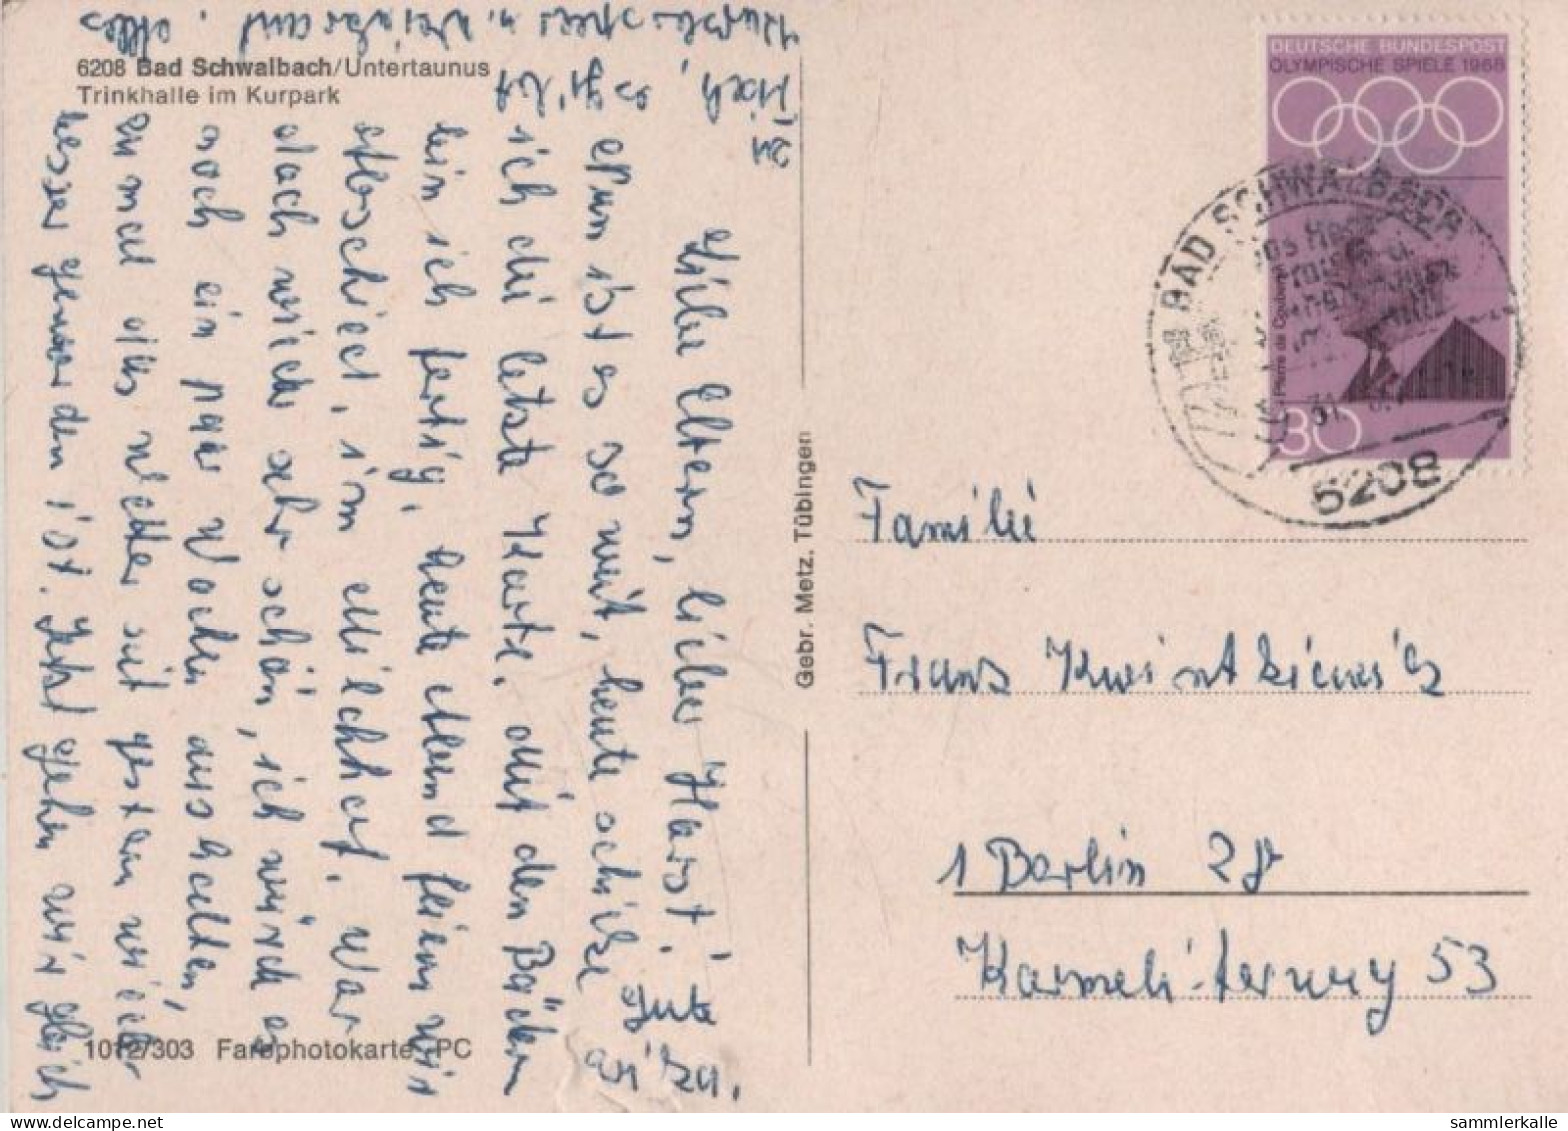 6208 Bad Schwalbach/Untertaunus
Trinkhalle im Kurpark
Liebe Eltern, lieber Horst! Gute
nun ist es so weit, heute schicke
ich die letzte Karte. Mit den Bädern
bin ich fertig, heute Abend feiern wir
Abschied, im Milchhof. War
doch wieder sehr schön, ich würde es
noch ein paar Wochen aushalten,
einmal alles wieder seit gestern wieder
besser geworden ist. Jetzt gehen wir gleich
es gibt
1012/303 Farbphotokarte PC
Gebr. Metz. Tübingen
DEUTSCHE BUNDESPOST
OLYMPISCHE SPIELE 1968
Pierre de Coubertin
30
BAD SCHWALBACH
6208
Familie
Franz Kwintkiewicz
1 Berlin 28
Karmeliterweg 53
sammlerkalle